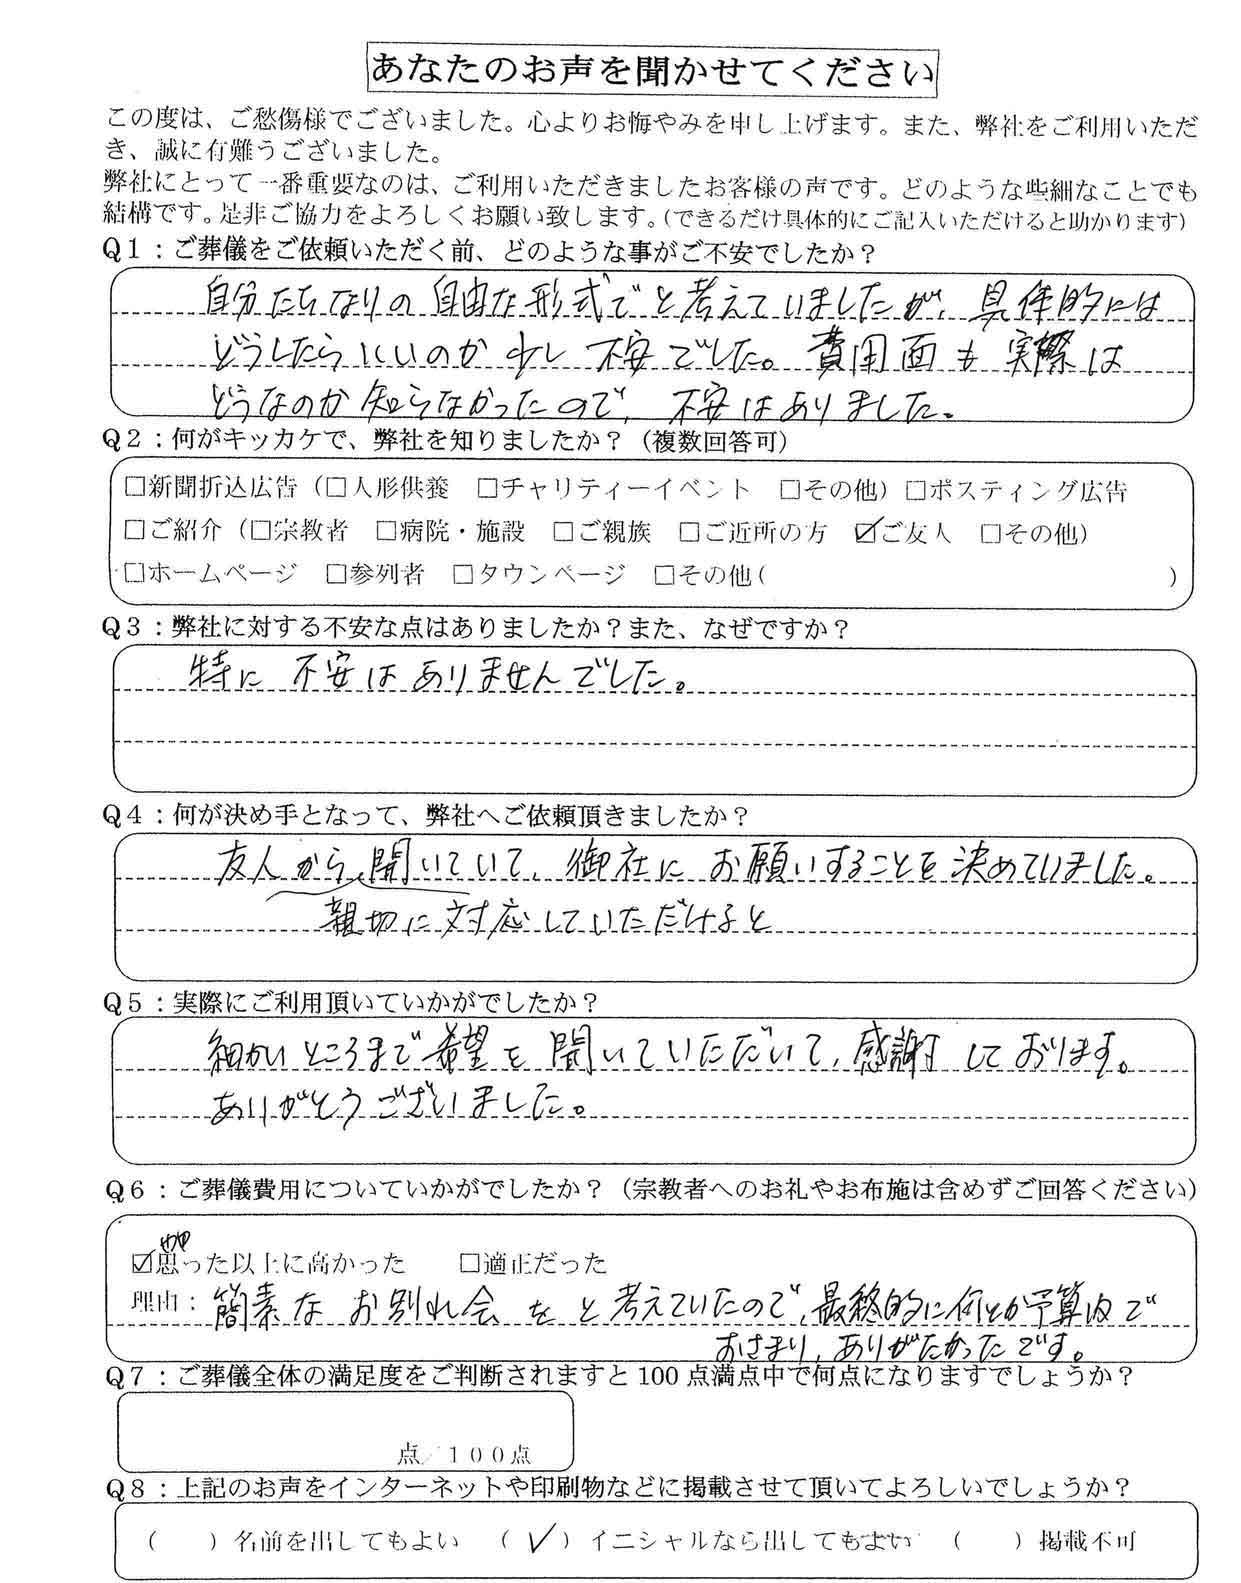 あなたのお声を聞かせてください
この度は、ご愁傷様でございました。心よりお悔やみを申し上げます。また、弊社をご利用いただ
き、誠に有難うございました。
弊社にとって一番重要なのは、ご利用いただきましたお客様の声です。どのような些細なことでも
結構です。是非ご協力をよろしくお願い致します。(できるだけ具体的にご記入いただけると助かります)
Q1:ご葬儀をご依頼いただく前、どのような事がご不安でしたか?
自分たちなりの自由な形式でと考えていましたが、具体的には
どうしたらいいのか少し不安でした。費用面も実際は
どうなのか知らなかったので、不安はありました。
Q2:何がキッカケで、弊社を知りましたか?(複数回答可)
□新聞折込広告(□人形供養 □チャリティーイベント □その他)□ポスティング広告
□ご紹介(□宗教者 □病院・施設 □ご親族 □ご近所の方 ☑ご友人 □その他)
□ホームページ □参列者 □タウンページ □その他( )
Q3:弊社に対する不安な点はありましたか?また、なぜですか?
特に不安はありませんでした。
Q4:何が決め手となって、弊社へご依頼頂きましたか?
友人から、聞いていて、御社にお願いすることを決めていました。
親切に対応していただけると
Q5:実際にご利用頂いていかがでしたか?
細かいところまで希望を聞いていただいて、感謝しております。
ありがとうございました。
Q6:ご葬儀費用についていかがでしたか?(宗教者へのお礼やお布施は含めずご回答ください)
やや
☑思った以上に高かった □適正だった
理由:簡素なお別れ会をと考えていたので、最終的に何とか予算内で
おさまり、ありがたかったです。
Q7:ご葬儀全体の満足度をご判断されますと100点満点中で何点になりますでしょうか?
点/100点
Q8:上記のお声をインターネットや印刷物などに掲載させて頂いてよろしいでしょうか?
( )名前を出してもよい (✓)イニシャルなら出してもよい ( )掲載不可